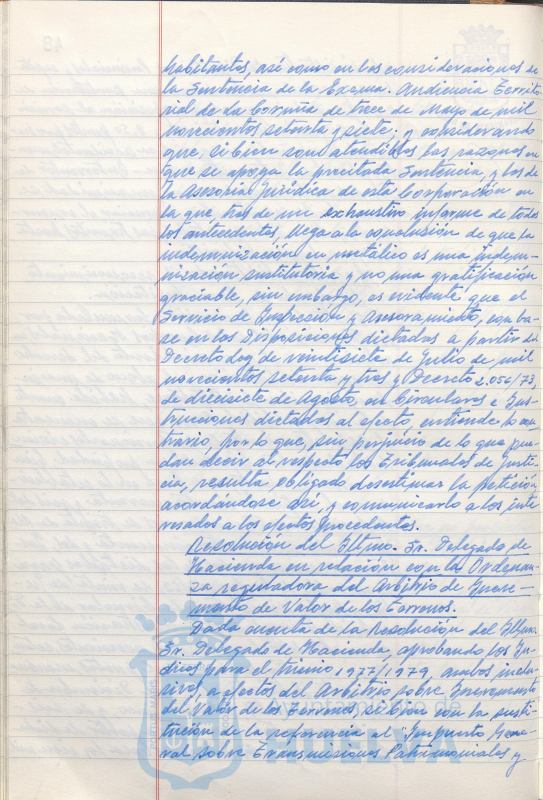 habitantes, así como en las consideraciones de
la Sentencia de la Excma. Audiencia Territo-
rial de La Coruña de trece de Mayo de mil
novecientos setenta y siete; y considerando
que, si bien son atendibles las razones en
que se apoya la precitada Sentencia, y los de
la Asesoría Jurídica de esta Corporación en
la que, tras de un exhaustivo informe de todos
los antecedentes, llega a la conclusión de que la
indemnización en metálico es una indem-
nización sustitutoria y no una gratificación
graciable, sin embargo, es evidente que el
Servicio de Inspección y Asesoramiento, con ba-
se en las Disposiciones dictadas a partir del
Decreto Ley de veintisiete de Julio de mil
novecientos setenta y tres y Decreto 2.056/73,
de diecisiete de Agosto, en Circulares e Ins-
trucciones dictadas al efecto, entiende lo con-
trario, por lo que, sin perjuicio de lo que pue-
dan decir al respecto los Tribunales de Justi-
cia, resulta obligado desestimar la petición
acordándose así, y comunicarlo a los inte-
resados a los efectos procedentes.
Resolución del Iltmo. Sr. Delegado de
Hacienda en relación con la Ordenan-
za reguladora del Arbitrio de Incre-
mento de Valor de los Terrenos.
Dada cuenta de la Resolución del Iltmo.
Sr. Delegado de Hacienda, aprobando los Ín-
dices para el trienio 1977/1979, ambos inclu-
sive, a efectos del Arbitrio sobre Incremento
del Valor de los Terrenos, si bien con la susti-
tución de la referencia al "Impuesto Gene-
ral sobre Transmisiones Patrimoniales y